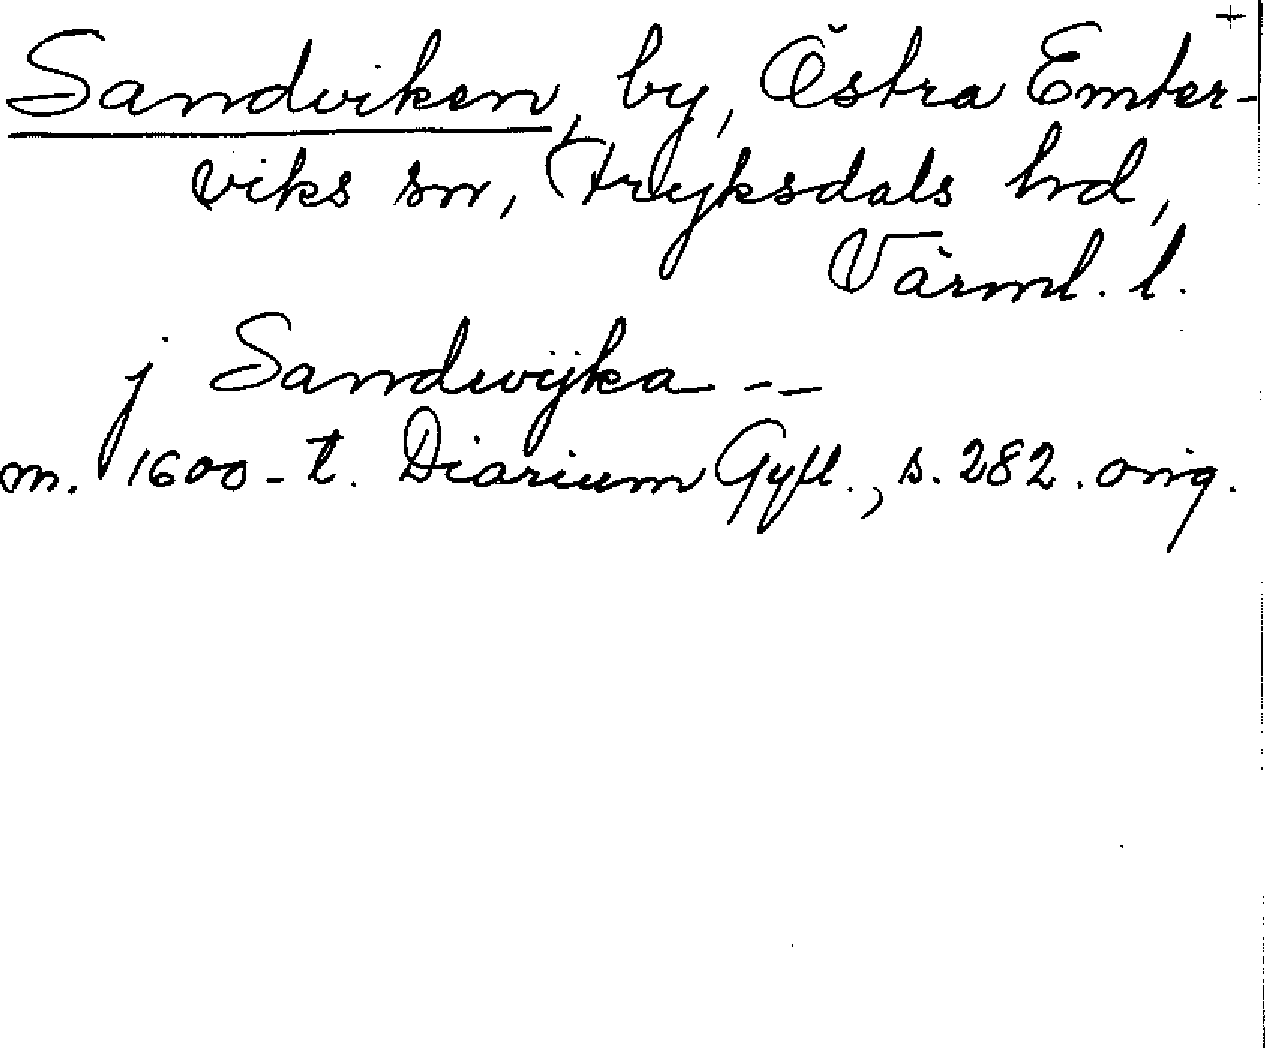 +
Sandviken, by, Östra Emter-
viks sn, Fryksdals hd,
Värml. l.
j Sandwijka - -
m. 1600-t. Diarium Gyll., s. 282. orig.